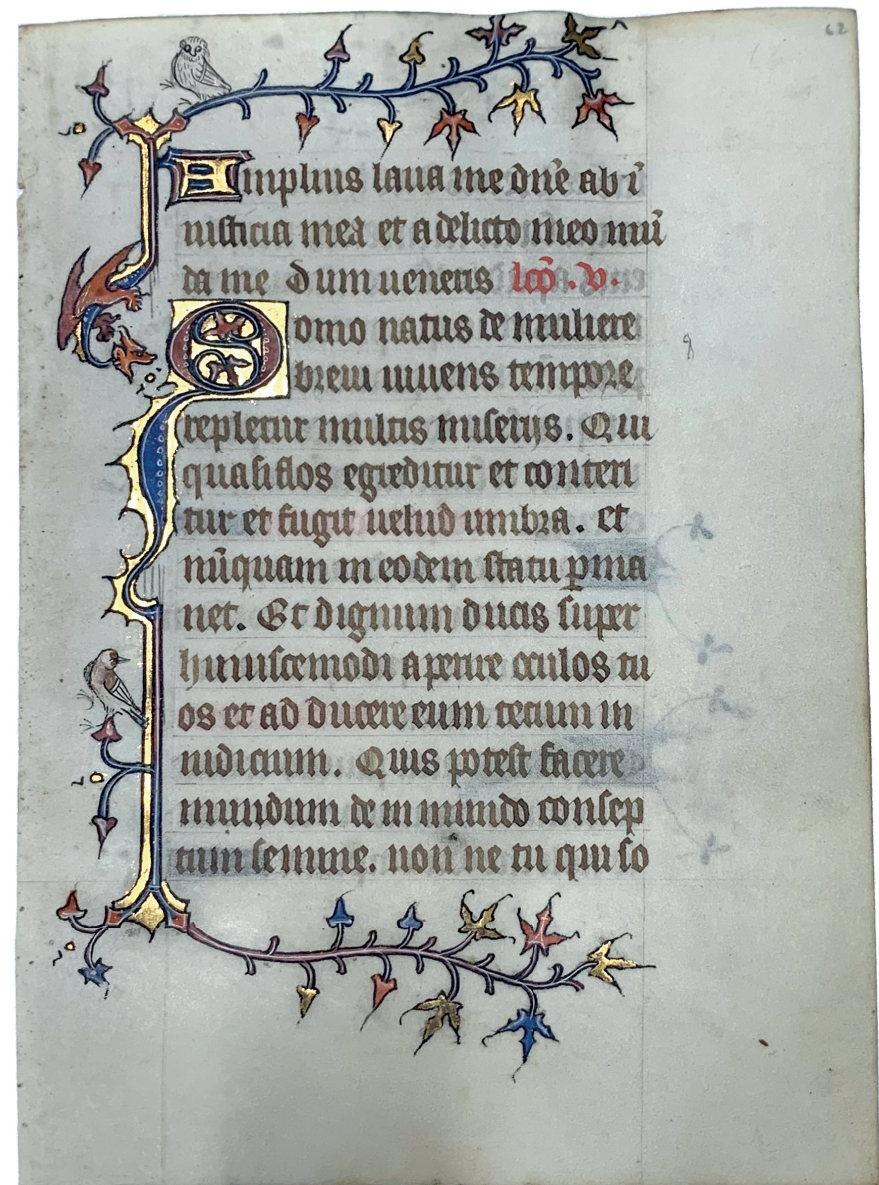 62
Amplius laua me dn̄e ab ī
iusticia mea et a delicto meo mū
da me dum ueneris lc̄o . v.
Homo natus de muliere
breui uiuens tempore
repletur multis miserijs. Qui
quasi flos egreditur et conteri
tur et fugit uelud umbra. et
nūquam in eodem statu ꝑma
net. Et dignum ducis super
huiuscemodi aperire oculos tu
os et ad ducere eum tecum in
iudicium. Quis potest facere
mundum de in mundo concep
tum semine. non ne tu qui so